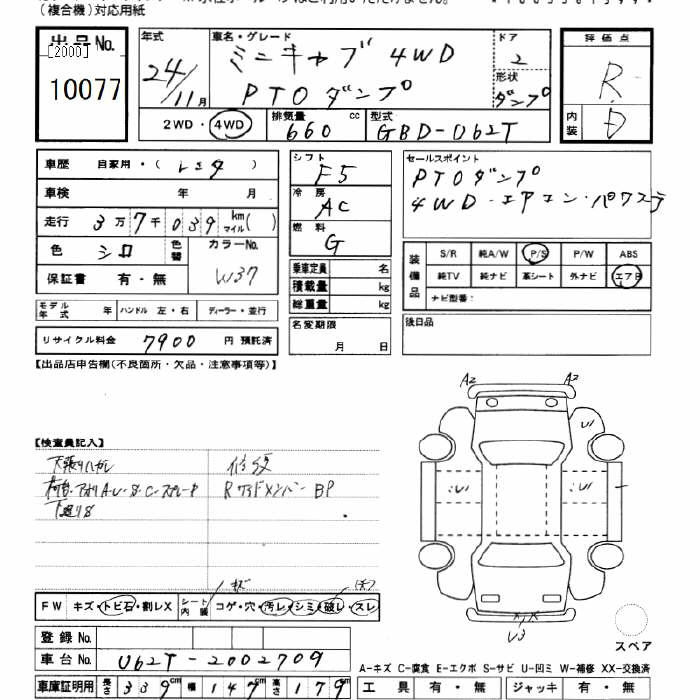 (複合機)対応用紙
出品No.
[2000]
10077
年式
24/11月
車名・グレード
ミニキャブ 4WD
PTOダンプ
ドア
2
形状
ダンプ
評価点
R
内装
D
2WD・4WD
排気量
660 cc
型式
GBD-U62T
車歴 自家用・( レンタ )
車検 年 月
走行 3万7千039 km マイル( )
色 シロ 色替
カラーNo.
W37
保証書 有・無
シフト
F5
冷房
AC
燃料
G
乗車定員 名
積載量 kg
総重量 kg
セールスポイント
PTOダンプ
4WD・エアコン・パワステ
装備品
S/R 純A/W P/S P/W ABS
純TV 純ナビ 革シート 外ナビ エアB
ナビ型番:
モデル年式 年 ハンドル 左・右 ディーラー・並行
名変期限
月 日
後日品
リサイクル料金 7900 円 預託済
【出品店申告欄(不良箇所・欠品・注意事項等)】
A2 A2
U
【検査員記入】
修復
BP
U U
下廻りS
キズ
FW キズ・トビ石・割レX シート内装 コゲ・穴・汚レ・シミ・破レ・スレ
X X
U3
スペア
登録No.
車台No. U62T-2002709
A-キズ C-腐食 E-エクボ S-サビ U-凹ミ W-補修 XX-交換済
車庫証明用 長さ 339cm 幅 147cm 高さ 179cm
工具 有・無 ジャッキ 有・無